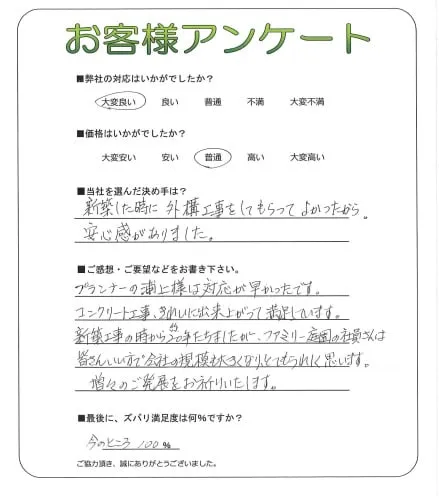 お客様アンケート
■弊社の対応はいかがでしたか?
大変良い 良い 普通 不満 大変不満
■価格はいかがでしたか?
大変安い 安い 普通 高い 大変高い
■当社を選んだ決め手は?
新築した時に外構工事をしてもらってよかったから。
安心感がありました。
■ご感想・ご要望などをお書き下さい。
プランナーの浦上様は対応が早かったです。
コンクリート工事、きれいに出来上がって満足しています。
新築工事の時から20年たちましたが、ファミリー庭園の社員さんは
皆さんいい方で会社の規模も大きくなり、とてもうれしく思います。
増々のご発展をお祈りいたします。
■最後に、ズバリ満足度は何%ですか?
今のところ 100 %
ご協力頂き、誠にありがとうございました。